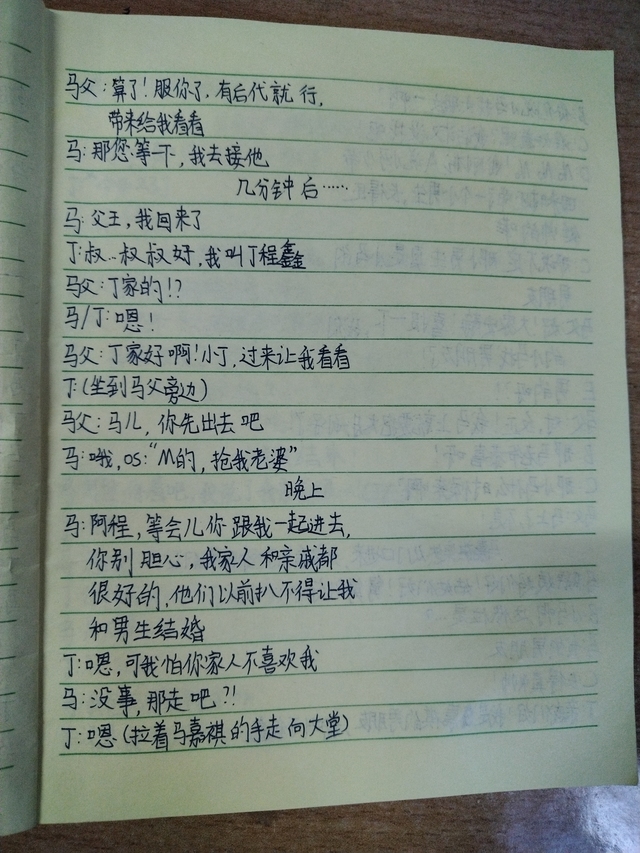 马父:算了!服你了,有后代就行,
带来给我看看
马:那您等一下,我去接他
几分钟后……
马:父王,我回来了
丁:叔..叔叔好,我叫丁程鑫
马父:丁家的!?
马/丁:嗯!
马父:丁家好啊!小丁,过来让我看看
丁:(坐到马父旁边)
马父:马儿,你先出去吧
马:哦,os:“M的,抢我老婆”
晚上
马:阿程,等会儿你跟我一起进去,
你别胆心,我家人和亲戚都
很好的,他们以前扒不得让我
和男生结婚
丁:嗯,可我怕你家人不喜欢我
马:没事,那走吧?!
丁:嗯(拉着马嘉祺的手走向大堂)